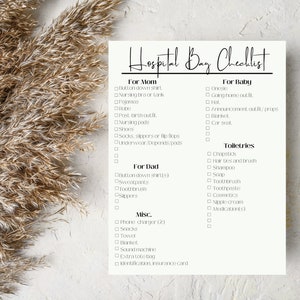 Hospital Bag Checklist
For Mom
Button down shirt
Nursing bra or tank
Pajamas
Robe
Post partum outfit
Nursing pads
Shoes
Socks, slippers or flip flops
Underwear, Depends, pads
For Dad
Button down shirt(s)
Sweatpants
Toothbrush
Slippers
Misc.
Phone charger(s)
Snacks
Towel
Blanket
Sound machine
Extra tote bag
Identification, insurance card
For Baby
Onesie
Going home outfit
Hat
Announcement outfit/props
Blanket
Car seat
Toiletries
Chapstick
Hair ties and brush
Shampoo
Soap
Toothbrush
Toothpaste
Cosmetics
Nipple cream
Medication(s)